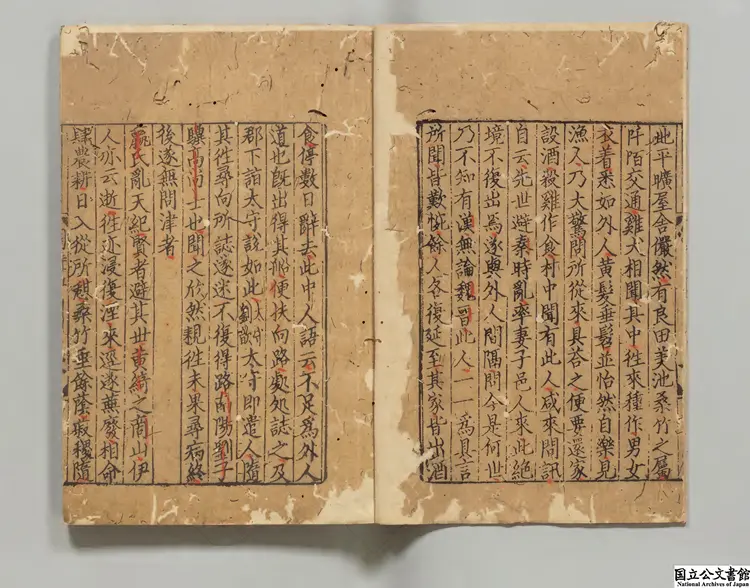 此平曠屋舍儼然有良田美池桑竹之屬
阡陌交通雞犬相聞其中徃來種作男女
衣着悉如外人黄髪垂髫並怡然自樂見
漁人乃大驚問所從來具荅之便要還家
設酒殺雞作食村中聞有此人咸來問訊
自云先世避秦時亂率妻子邑人來此絶
境不復出焉遂與外人間隔問今是何世
乃不知有漢無論魏晋此人一一爲具言
所聞皆歎惋餘人各復延至其家皆出酒
食停數日辭去此中人語云不足爲外人
道也既出得其舩便扶向路處処誌之及
郡下詣太守説如此太守劉歆太守即遣人隨
其徃尋向所誌遂迷不復得路南陽劉子
驥高尚士也聞之欣然親徃未果尋病終
後遂無問津者
嬴氏亂天紀賢者避其世黄綺之商山伊
人亦云逝徃迹浸復湮來逕遂蕪廢相命
肆農耕日入從所憇桑竹垂餘蔭菽稷隨
国立公文書館
National Archives of Japan